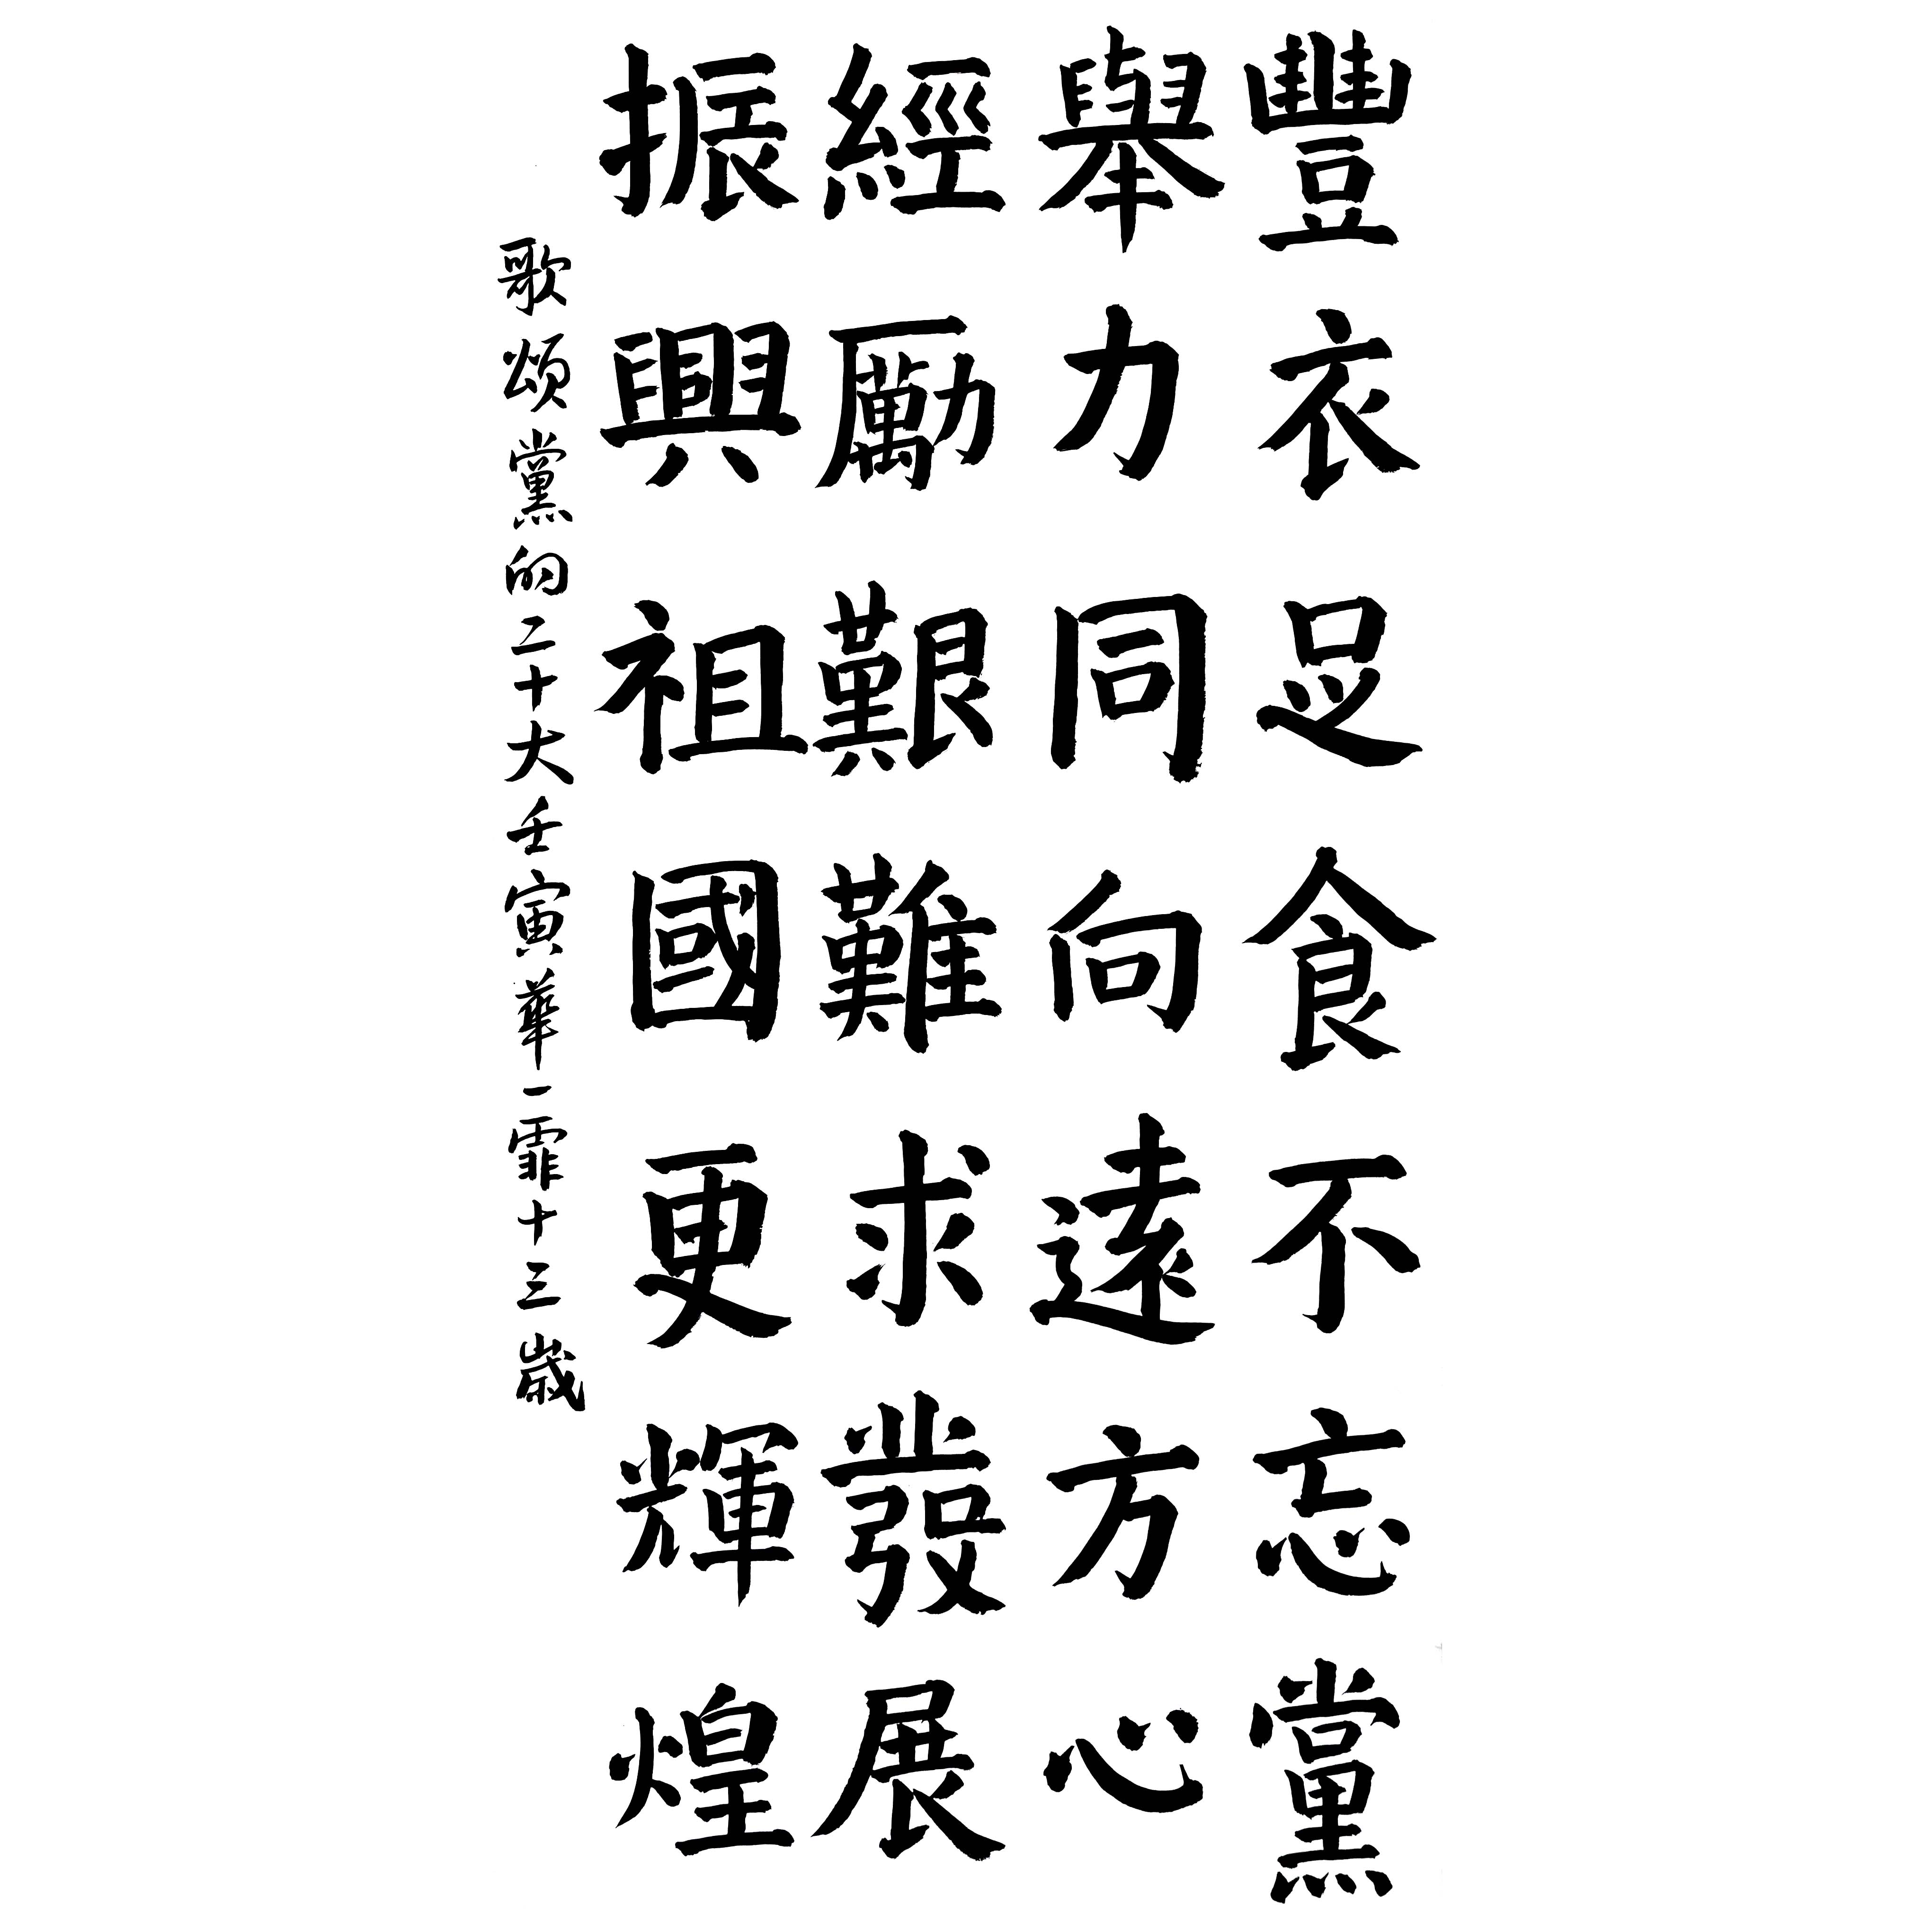 豐衣足食不忘黨
舉力同向遠方心
經勵艱難求發展
振興祖國更輝煌
歌頌黨的二十大壬寅華一霏十三歲